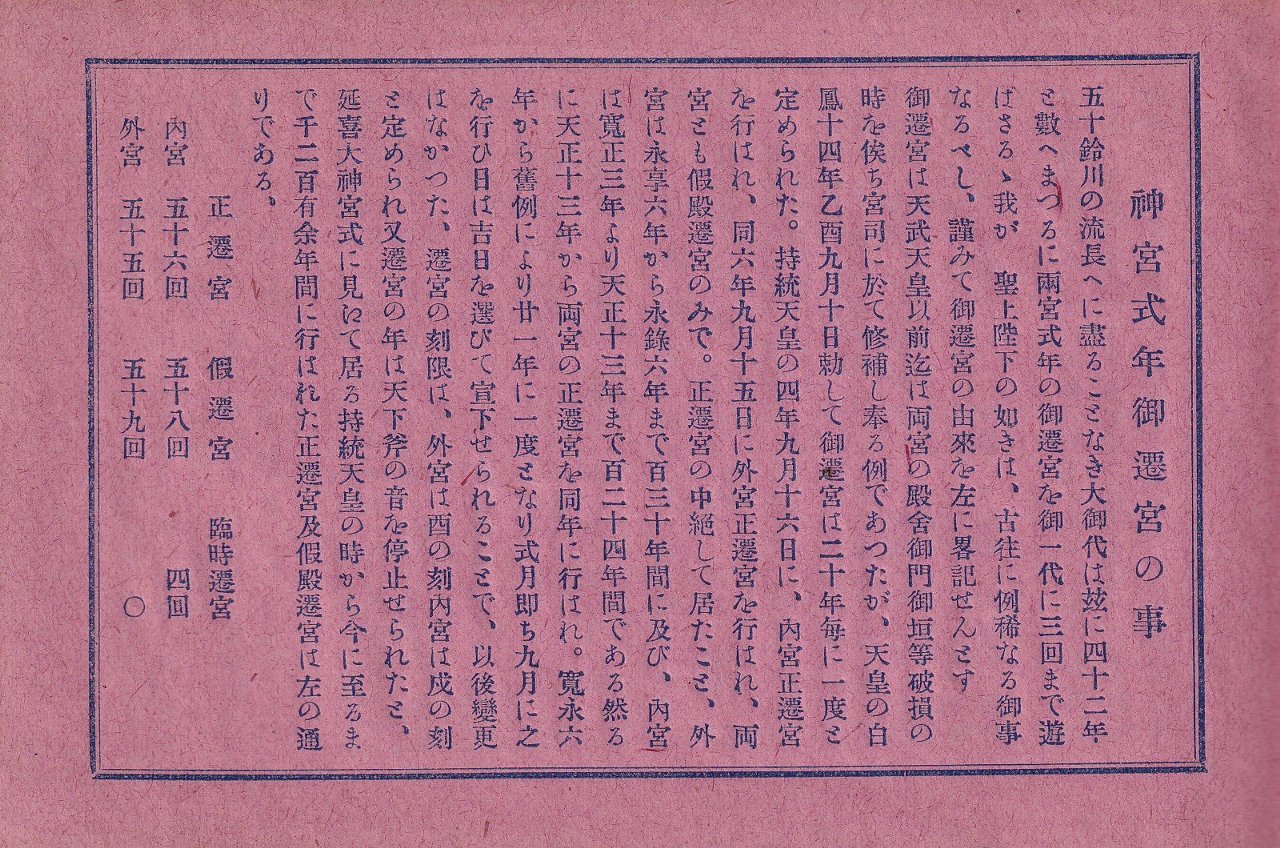 神宮式年御遷宮の事
五十鈴川の流長へに盡ることなき大御代は玆に四十二年
と數へまつるに兩宮式年の御遷宮を御一代に三回まで遊
ばさるゝ我が　聖上陛下の如きは、古往に例稀なる御事
なるべし、謹みて御遷宮の由來を左に畧記せんとす
御遷宮は天武天皇以前迄は両宮の殿舍御門御垣等破損の
時を俟ち宮司に於て修補し奉る例であつたが、天皇の白
鳳十四年乙酉九月十日勅して御遷宮は二十年每に一度と
定められた。持統天皇の四年九月十六日に、內宮正遷宮
を行はれ、同六年九月十五日に外宮正遷宮を行はれ、両
宮とも假殿遷宮のみで。正遷宮の中絕して居たこと、外
宮は永享六年から永錄六年まで百三十年間に及び、內宮
は寬正三年より天正十三年まで百二十四年間である然る
に天正十三年から両宮の正遷宮を同年に行はれ。寬永六
年から舊例により廿一年に一度となり式月即ち九月に之
を行ひ日は吉日を選びて宣下せられることで、以後變更
はなかつた、遷宮の刻限は、外宮は酉の刻內宮は戍の刻
と定められ又遷宮の年は天下斧の音を停止せられたと、
延喜大神宮式に見えて居る持統天皇の時から今に至るま
で千二百有余年間に行はれた正遷宮及假殿遷宮は左の通
りである、
正遷宮　假遷宮　臨時遷宮
內宮　五十六回　五十八回　四回
外宮　五十五回　五十九回　〇